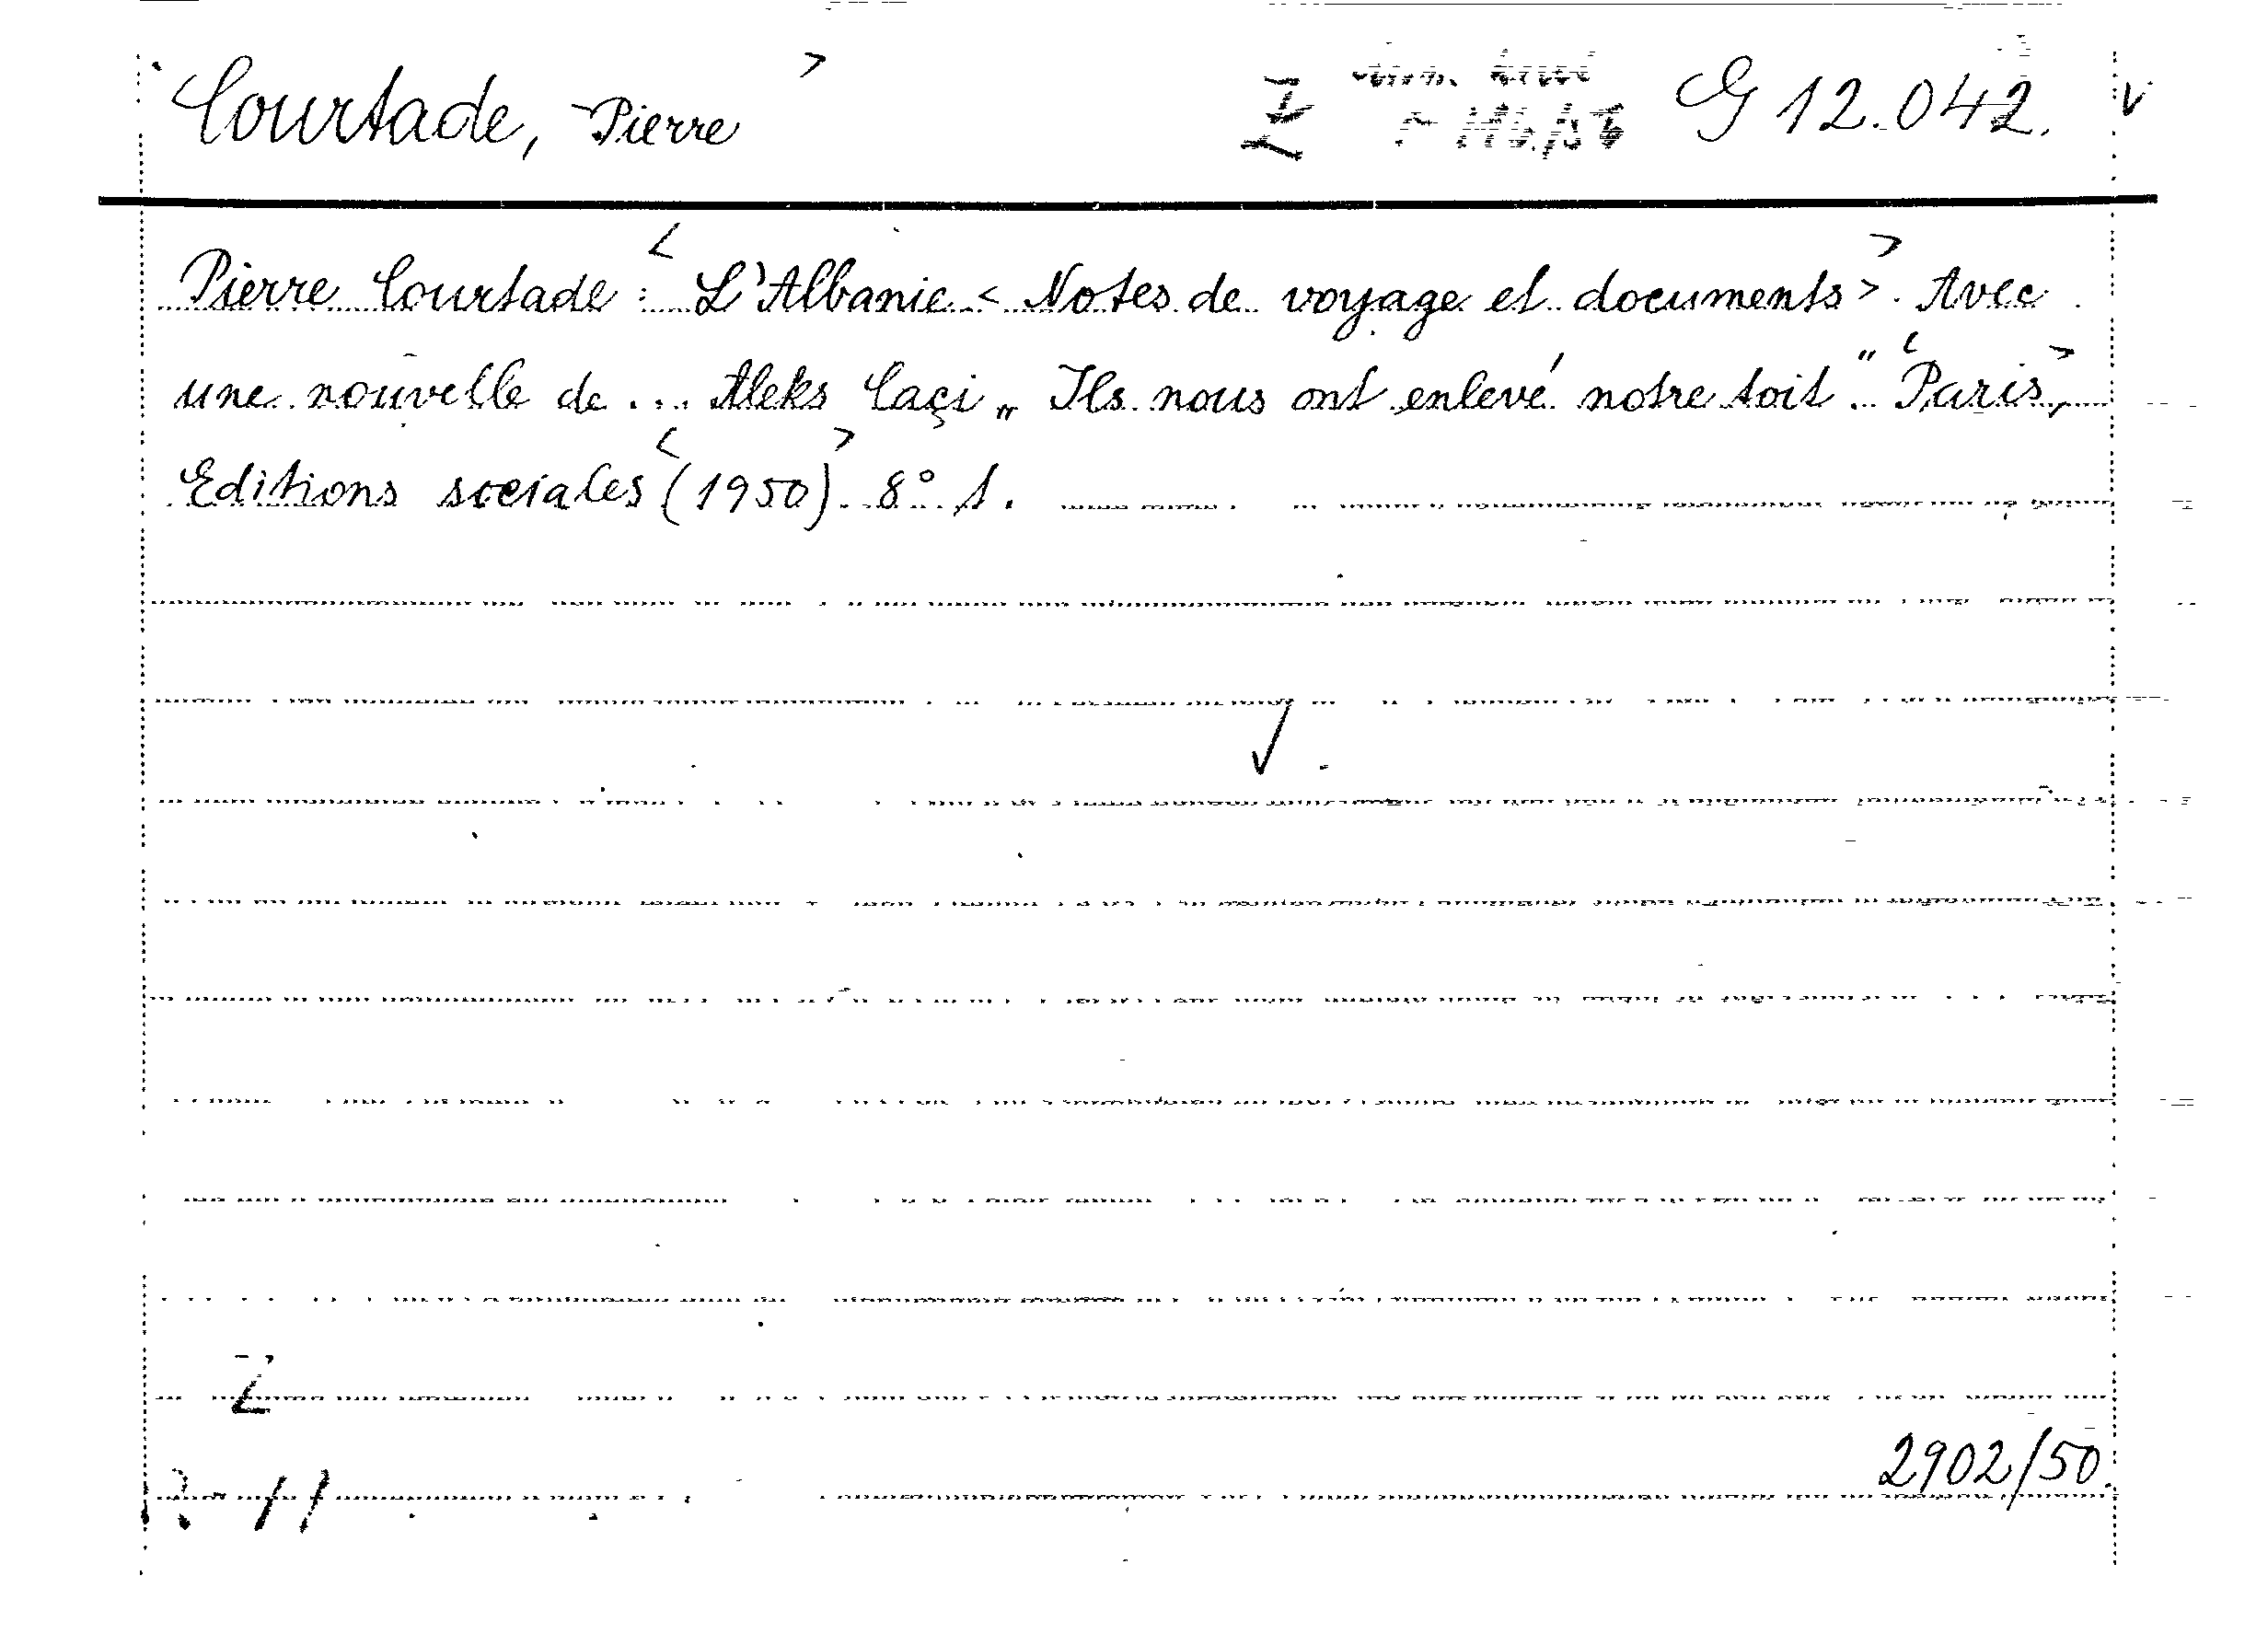 Courtade, Pierre > Z G 12.042. v
Pierre Courtade: < L'Albanie < Notes de voyage et documents >. > Avec
une nouvelle de ... Aleks Caçi „Ils nous ont enlevé notre toit". < Paris, >
Editions sociales < (1950) >. 8° 1.
Z
2902/50.